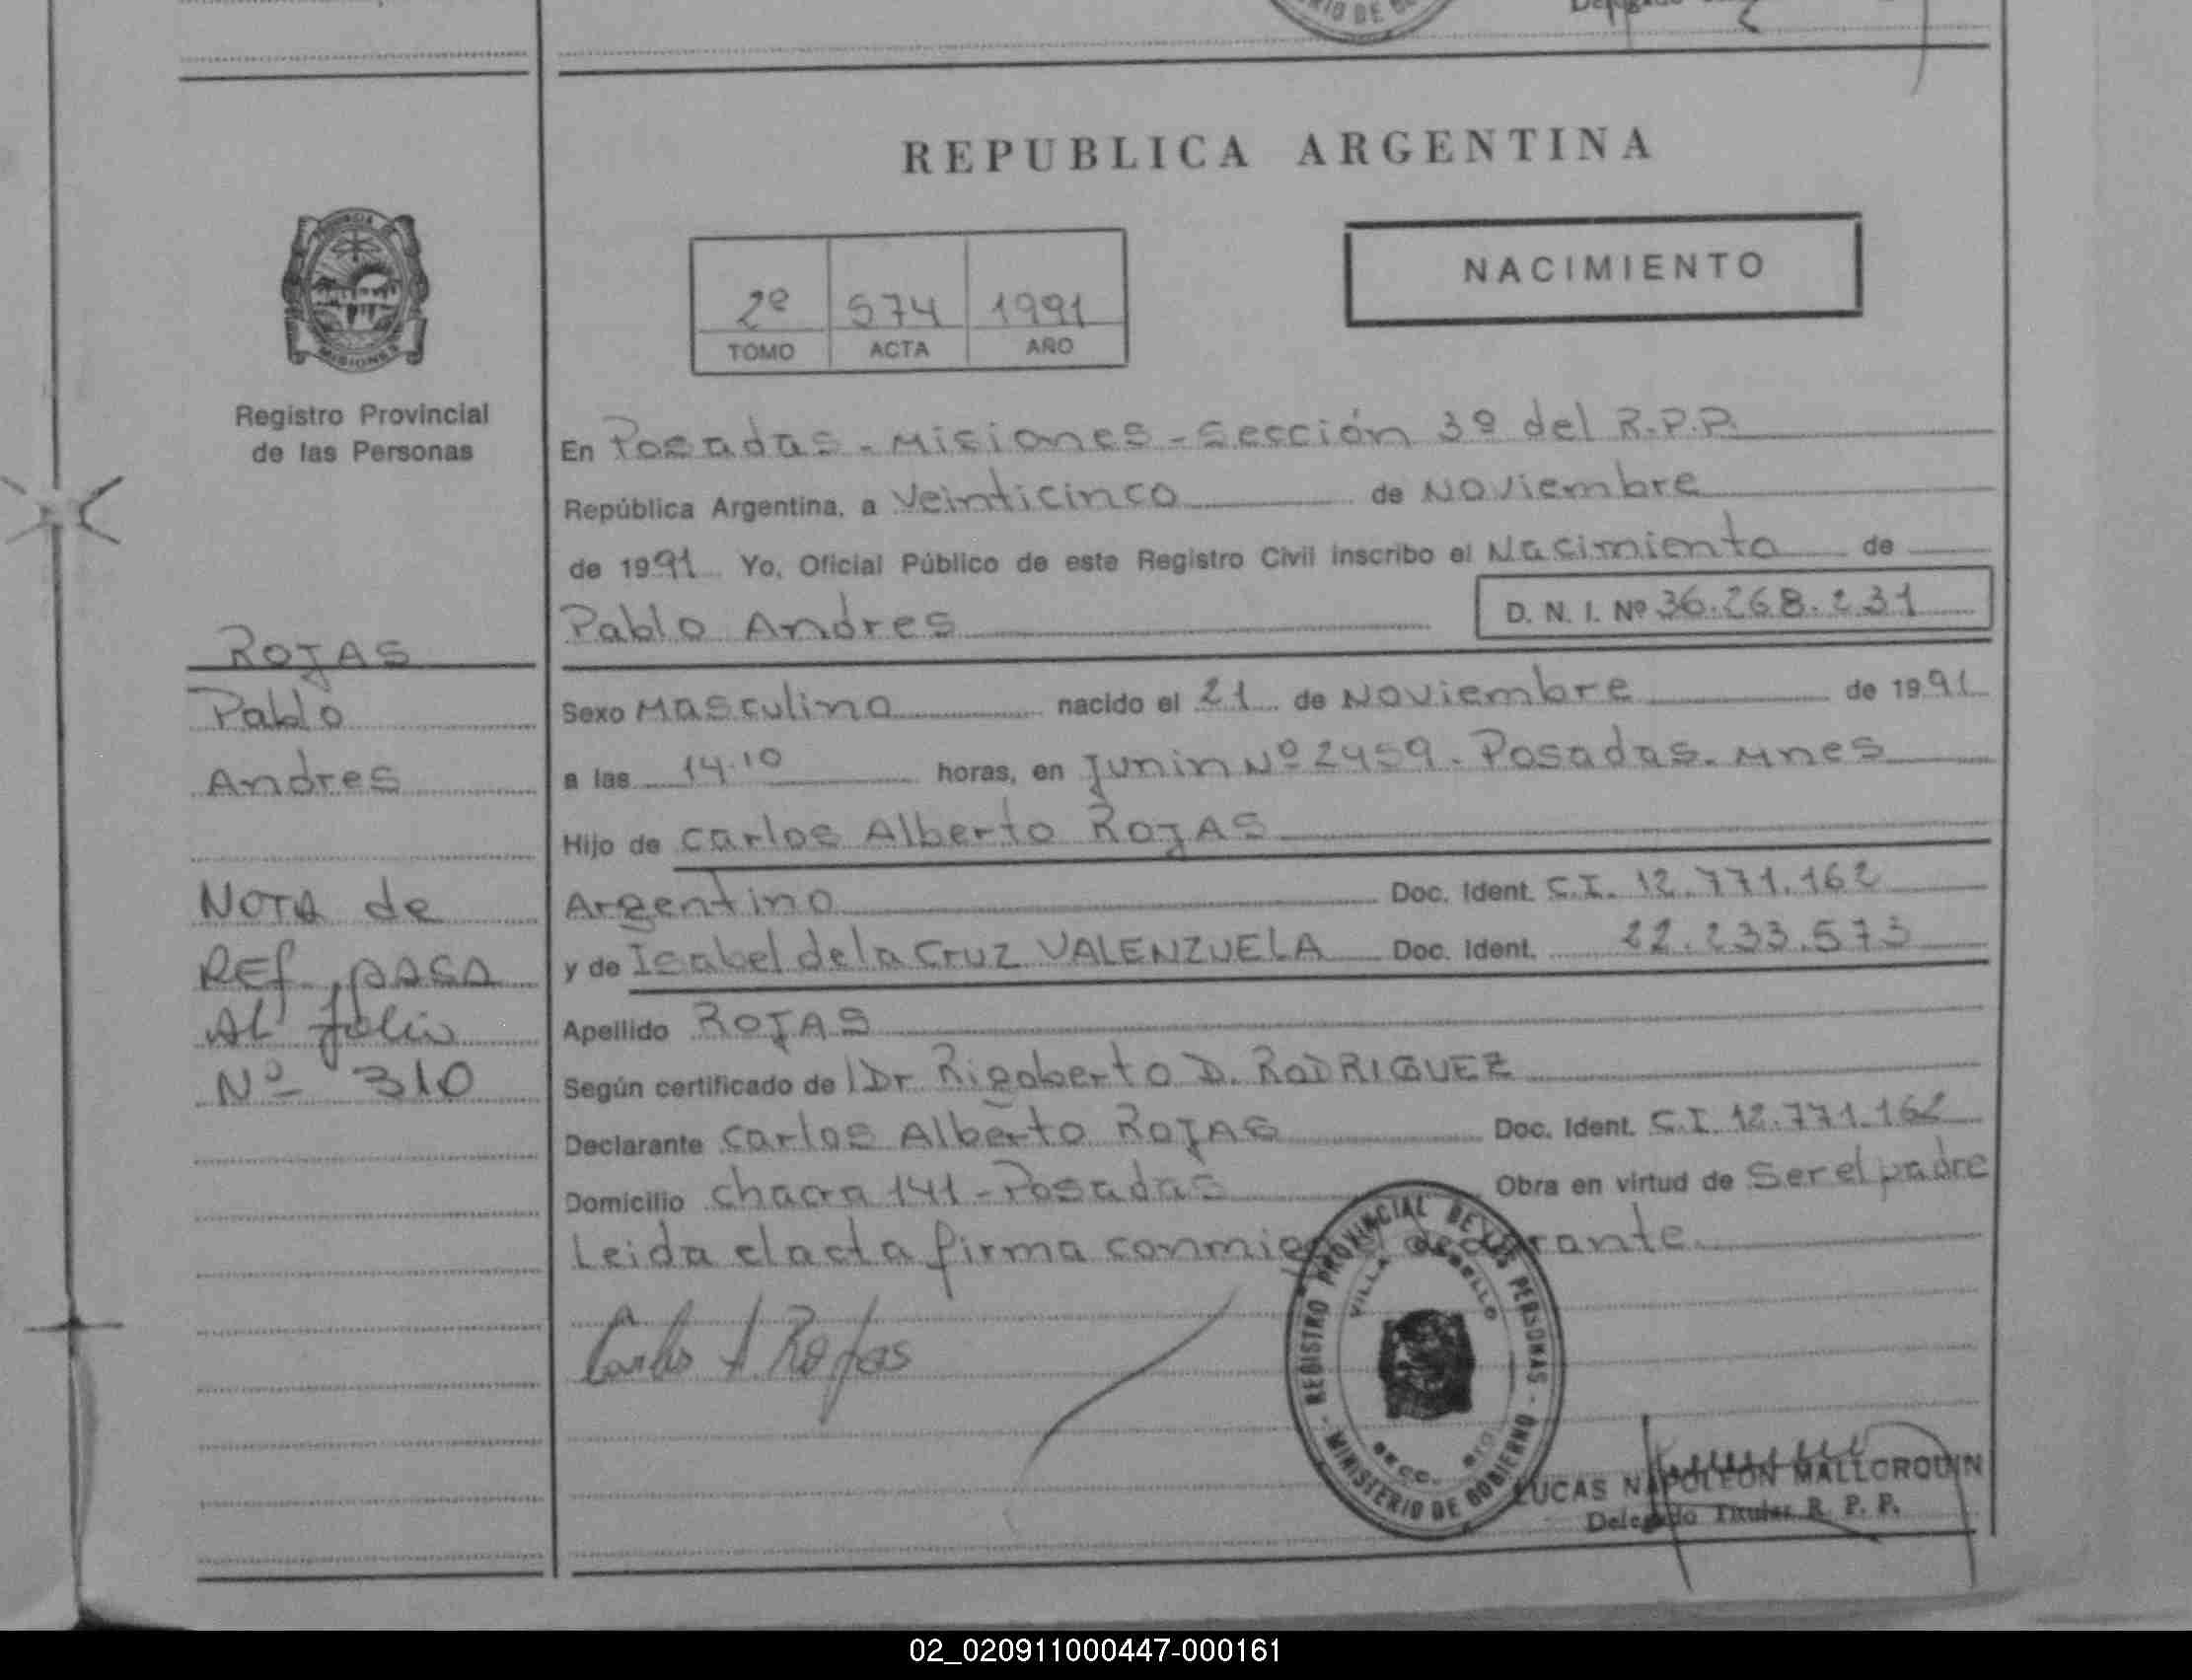 REPUBLICA ARGENTINA
NACIMIENTO
2º 574 1991
TOMO ACTA AÑO
MISIONES
Registro Provincial
de las Personas
En Posadas - Misiones - Sección 3º del R.P.P.
República Argentina, a Veinticinco de Noviembre
de 1991 Yo, Oficial Público de este Registro Civil inscribo el Nacimiento de
Pablo Andres D. N. I. Nº 36.268.231
ROJAS
Pablo
Andres
Sexo Masculino nacido el 21 de Noviembre de 1991
a las 14.10 horas, en Junin Nº 2459. Posadas. Mnes
Hijo de Carlos Alberto ROJAS
Argentino Doc. Ident. C.I. 12.771.162
y de Isabel de la Cruz VALENZUELA Doc. Ident. 22.233.573
NOTA de
REf. pASA
AL folio
Nº 310
Apellido ROJAS
Según certificado de Dr Rigoberto D. RODRIGUEZ
Declarante Carlos Alberto ROJAS Doc. Ident. C.I. 12.771.162
Domicilio chacra 141 - Posadas Obra en virtud de Ser el padre
Leida el acta firma conmigo el declarante.
Carlos A. Rojas
REGISTRO PROVINCIAL DE LAS PERSONAS - MINISTERIO DE GOBIERNO -
VILLA CABELLO
SECC.
LUCAS NAPOLEON MALLORQUIN
Delegado Titular R. P. P.
02_020911000447-000161